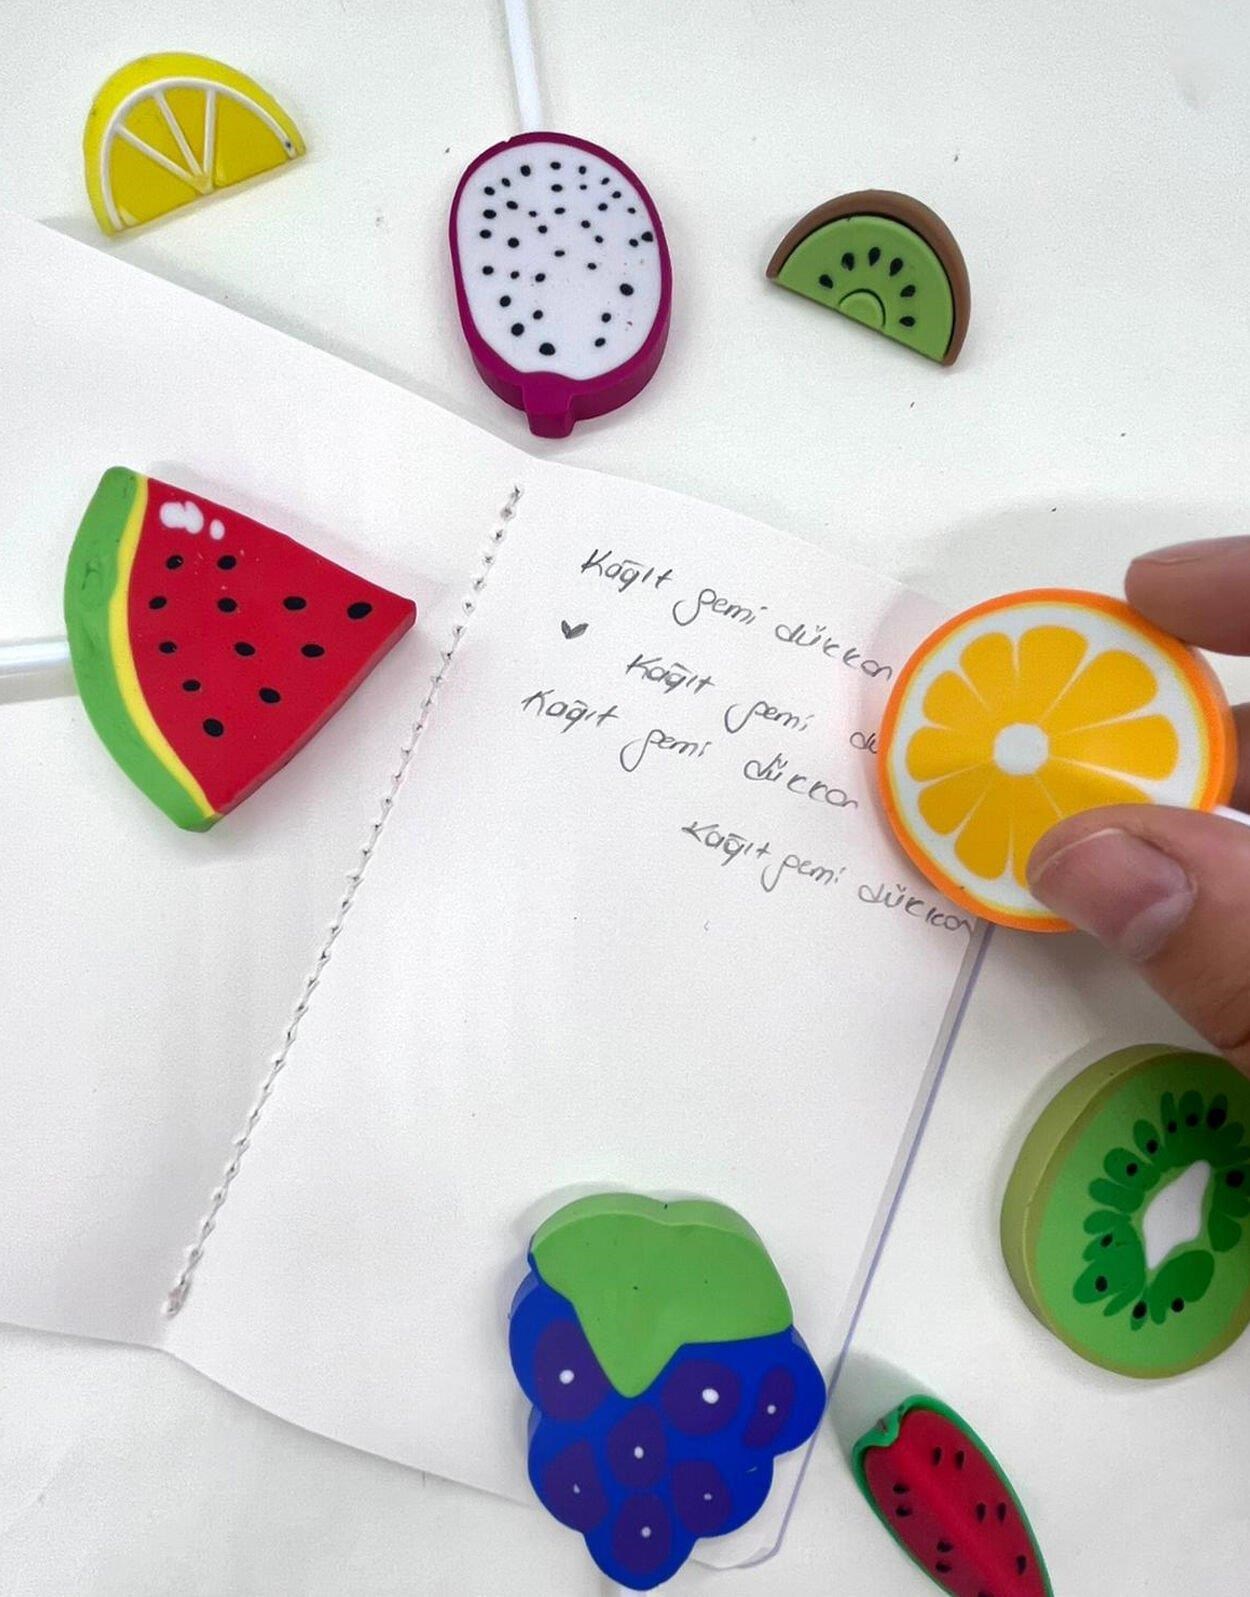 Kağıt gemi dükkan
Kağıt gemi dü
Kağıt gemi dükkan
Kağıt gemi dükkan